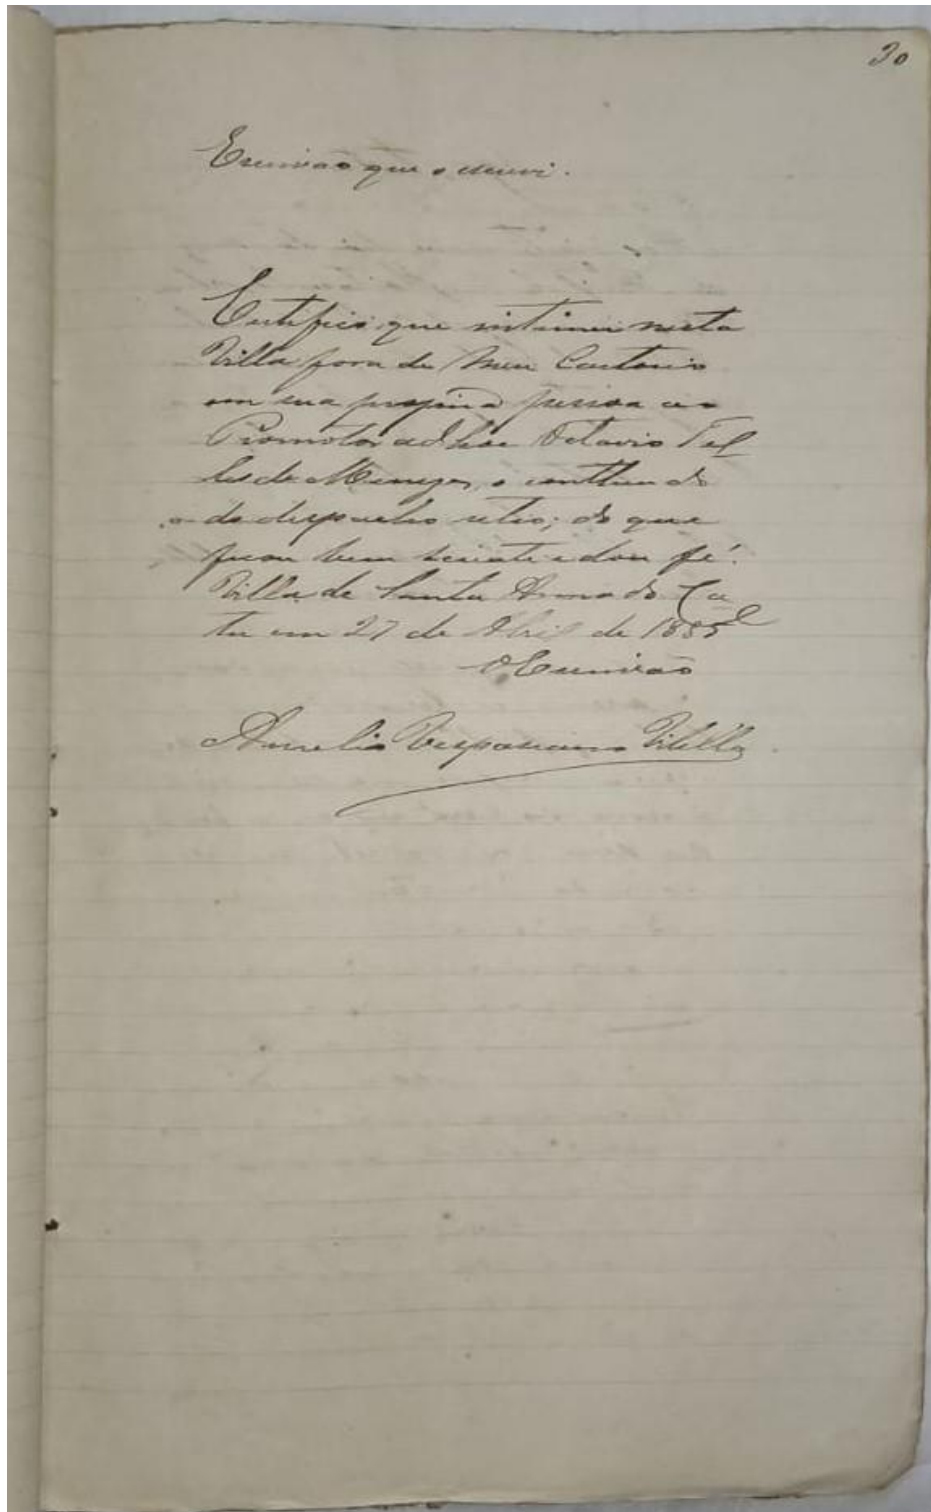 30
Escrivão que o escrevi.
Certifico que intimei nesta
Villa fora de meu Cartorio
em sua propria pessoa ao
Promotor ad hoc Octavio Tel
les de Menezes, o contheudo
do despacho retro; do que
ficou bem sciente e dou fé.
Villa de Santa Anna do Ca
tu em 27 de Abril de 1885
O Escrivão
Aurelio Vespasiano Vilella